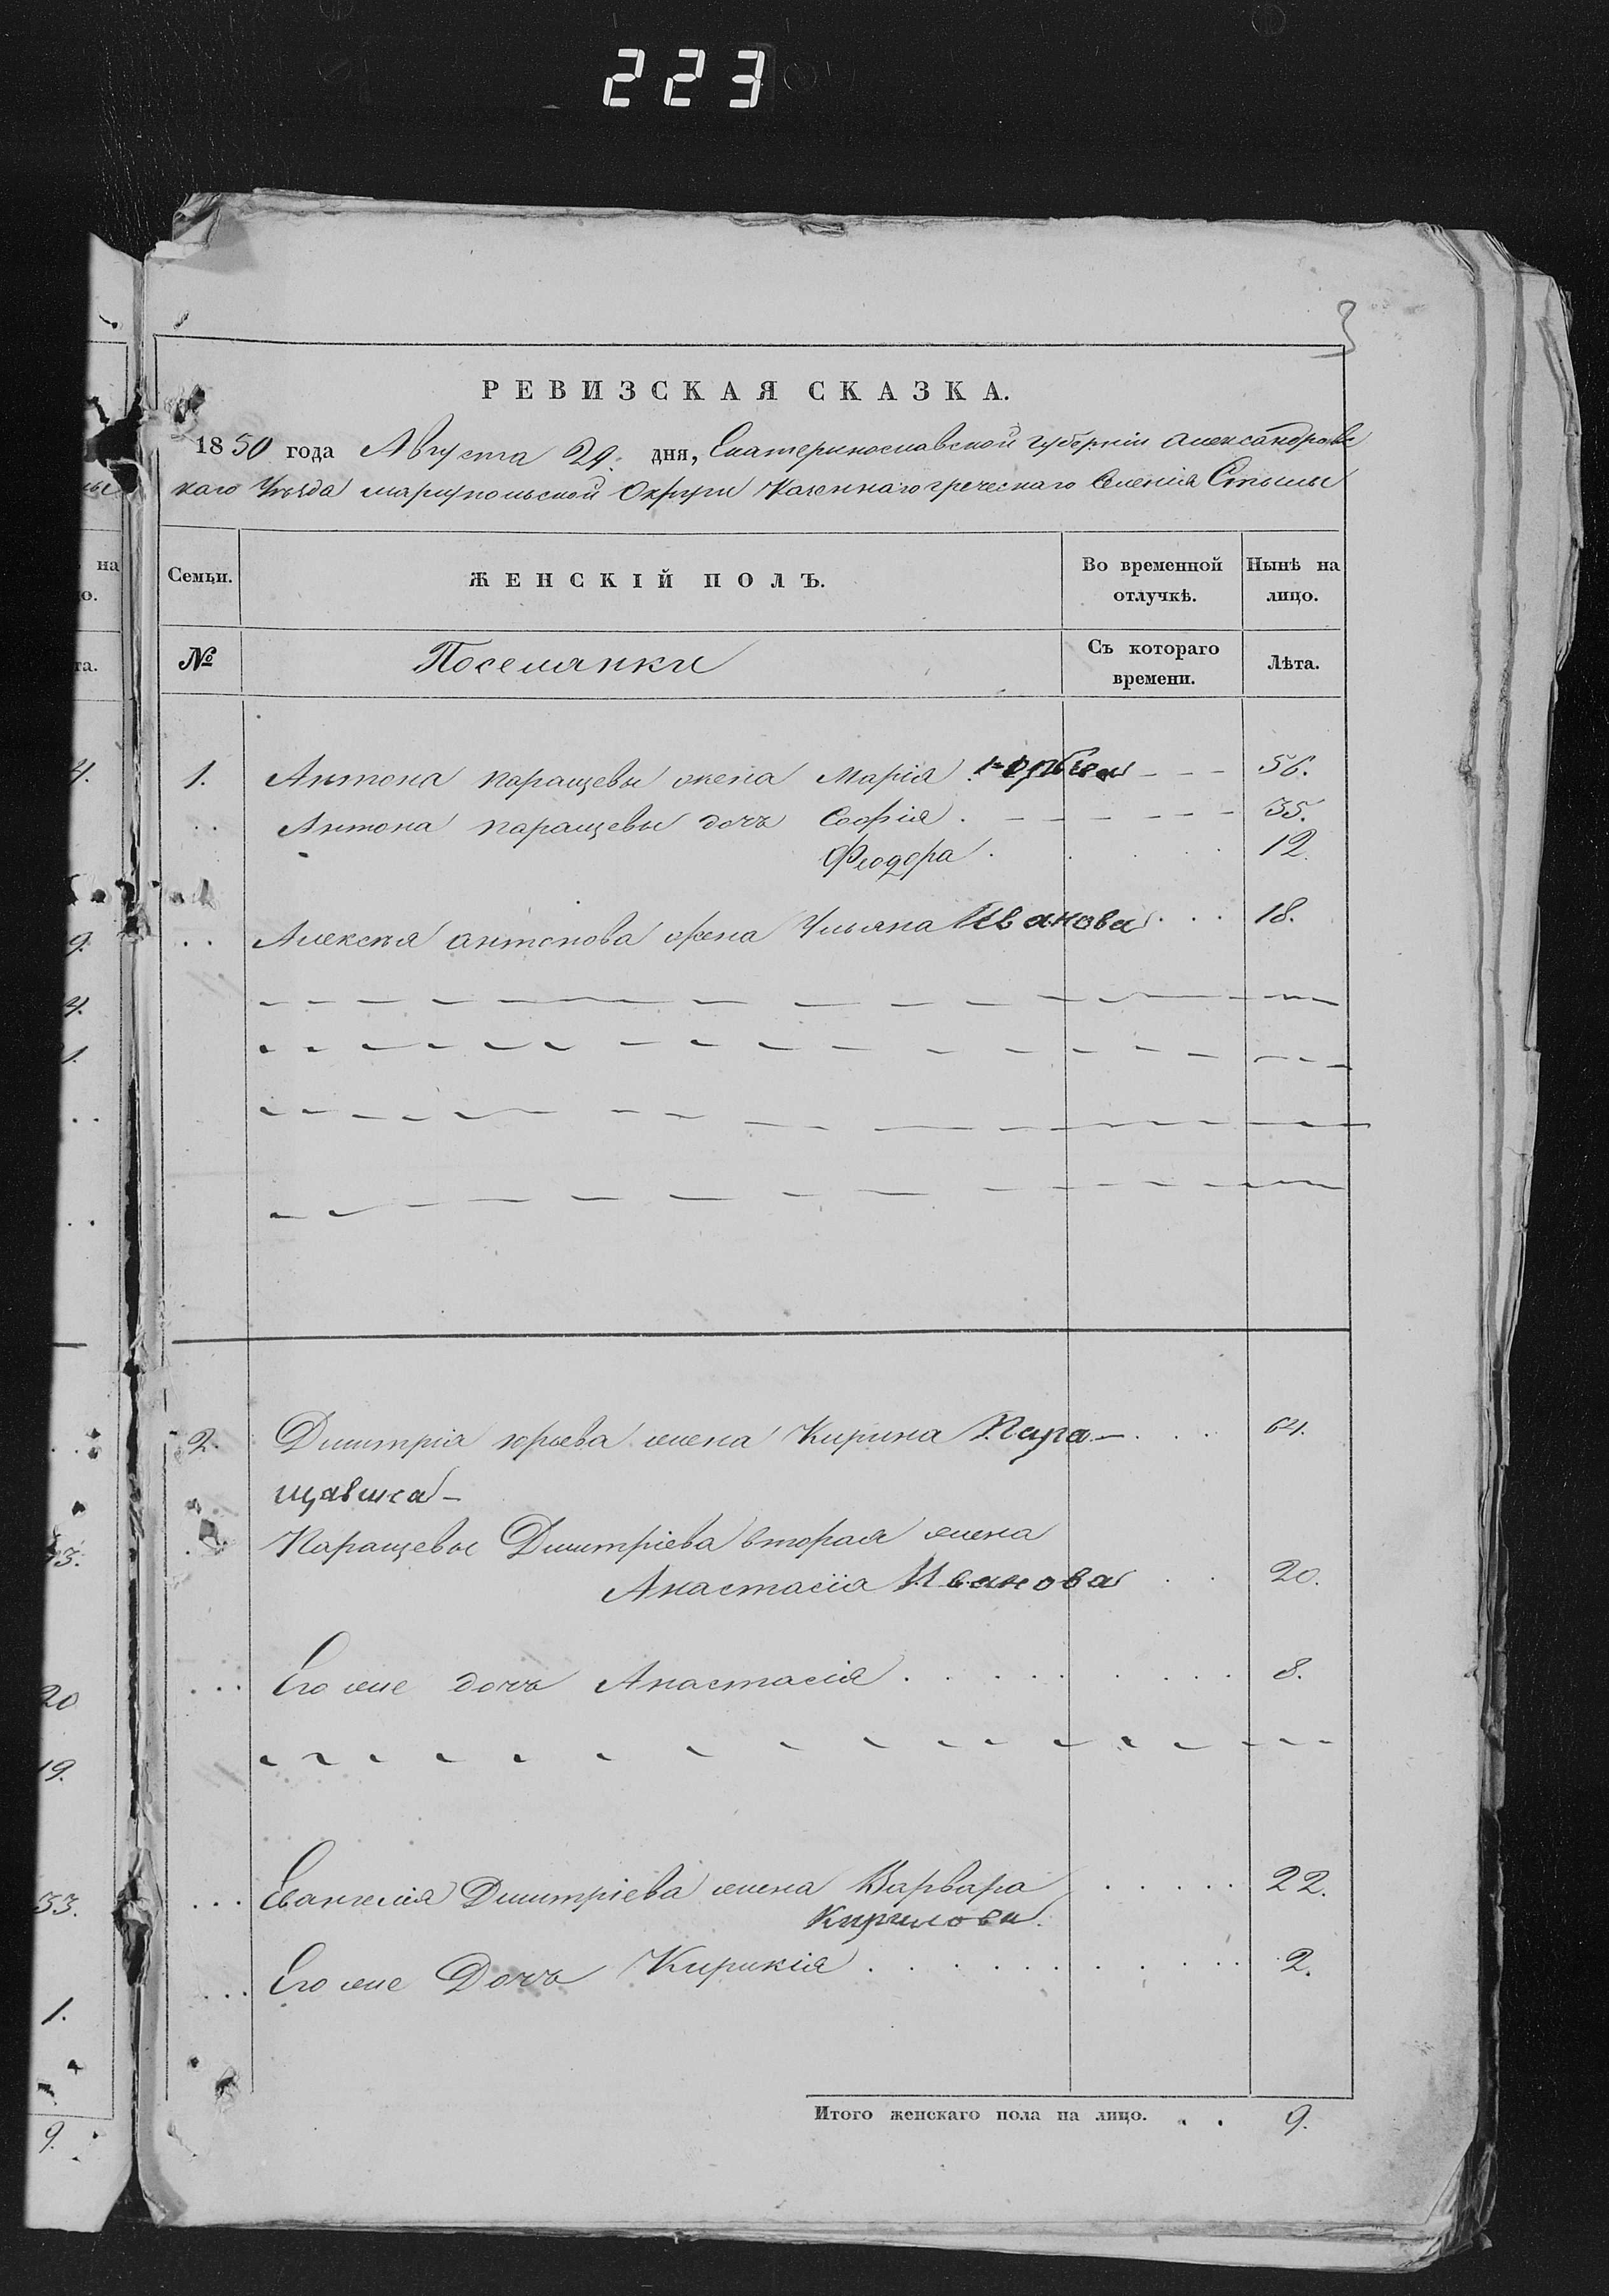 223
3
РЕВИЗСКАЯ СКАЗКА.
1850 года Августа 29. дня, Екатеринославской губернии Александровс
каго Уезда мариупольской Округи Казеннаго греческаго Селения Стылы
Семьи.
ЖЕНСКІЙ ПОЛЪ.
Во временной отлучкѣ.
Нынѣ на лицо.
№
Поселянки
Съ котораго времени.
Лѣта.
1. Антона паращевы жена Марія Юрьева - - - 56.
Антона паращевы дочь Софія . - - - - - - 35.
Феодора . . . 12.
Алексѣя антонова жена Ульяна Иванова . . . 18.
2. Дмитрія юрьева жена Кирика Пара- . . . 64.
щавина -
Паращевы Дмитріева вторая жена
Анастасія Иванова . . 20.
Его же дочь Анастасія . . . . . . . . 8.
Евангелія Дмитріева жена Варвара . . . . . 22.
Кирилова.
Его же Дочь Кирикія . . . . . . . . . 2.
Итого женскаго пола на лицо. . . 9.
на
о.
та.
4.
9.
4.
1.
20
19.
33.
1.
9.